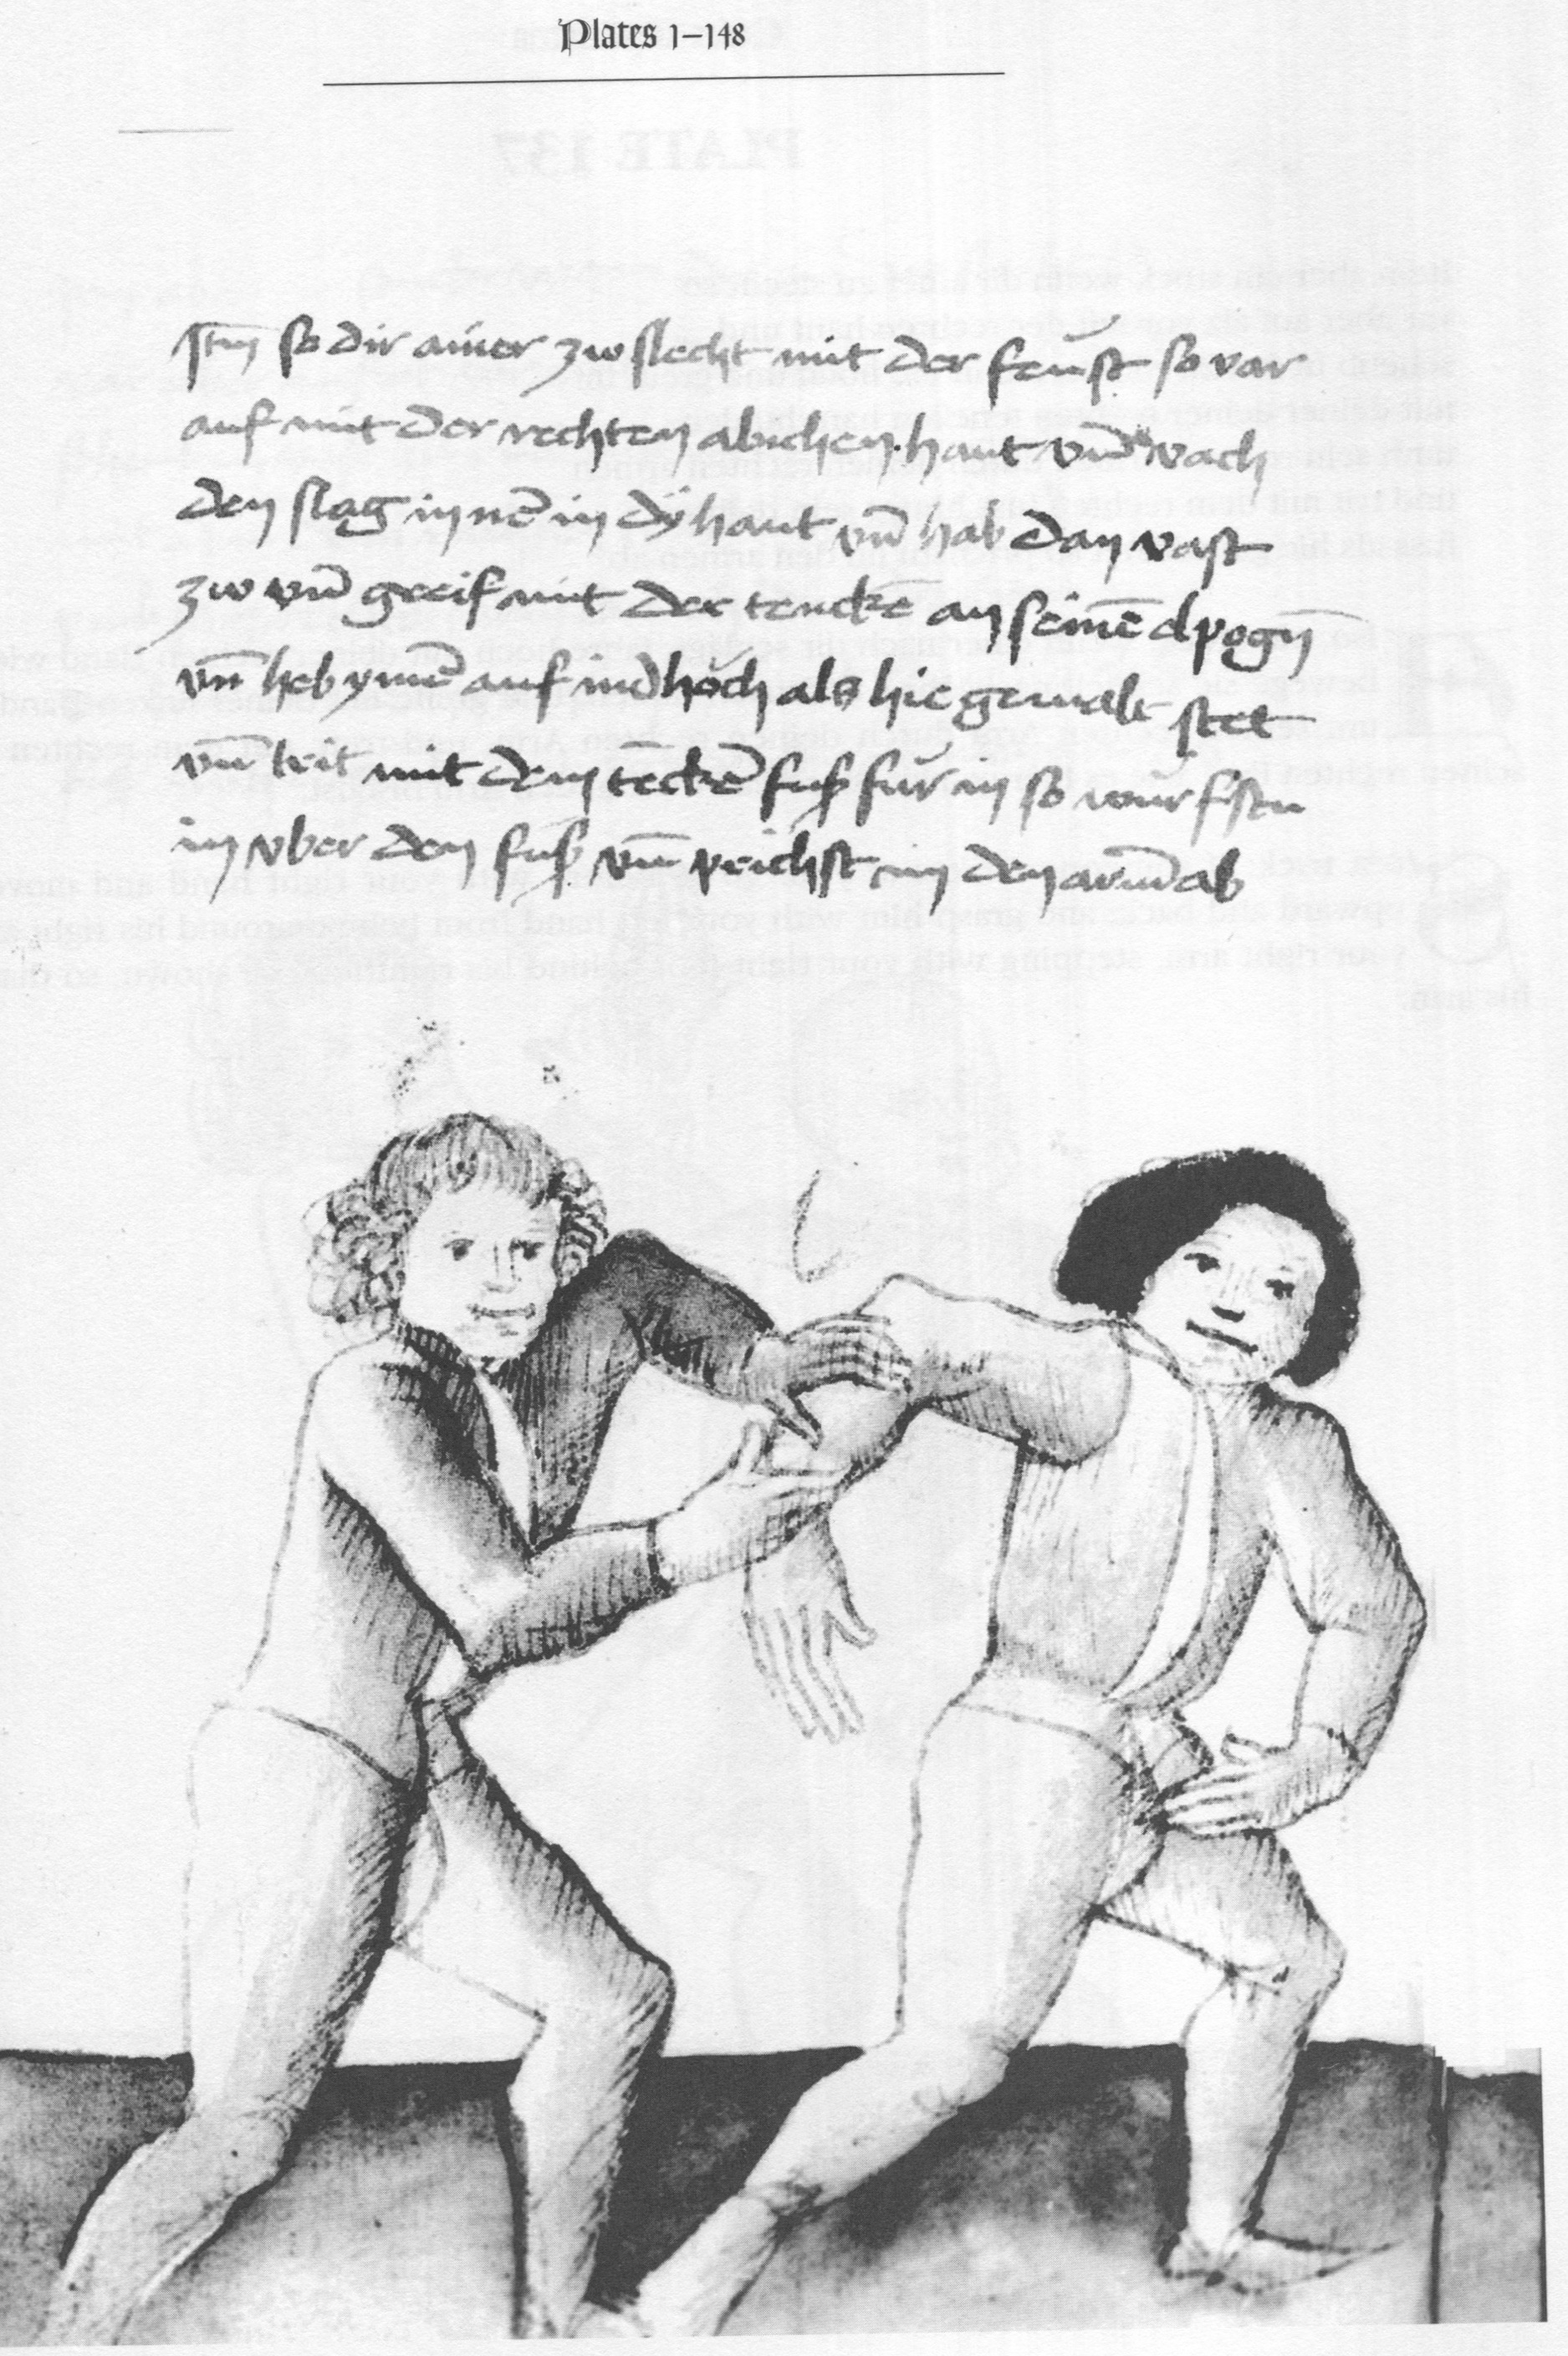 Plates 1–148
Itm̄ so dir ainer zw slecht mit der feust so var
auf mit der rechten abichen hant vnd̄ vach
den slag in nē in dÿ hant vn̄ hab dan vast
zw vn̄ greif mit der tenckē an seinē elpogn̄
vn̄ heb ymē auf in d hoch als hie gemalt stet
vn̄ trit mit dem tēckē fuß fur in so wurfstu
in vber den fuß vn̄ prichst im den arm̄ ab